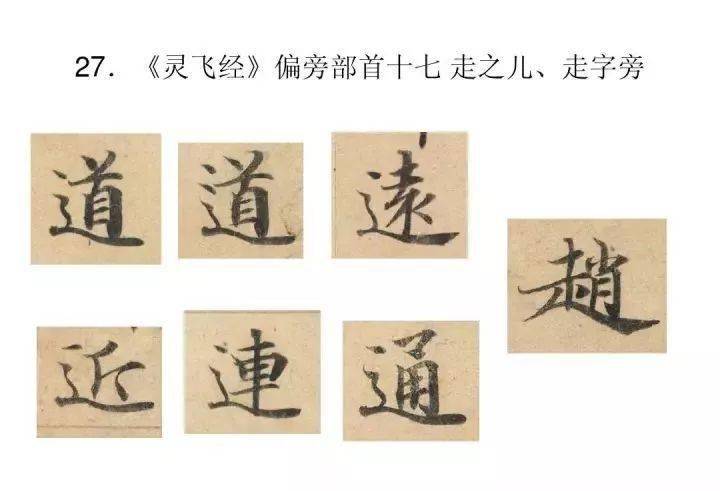 27．《灵飞经》偏旁部首十七 走之儿、走字旁
道 道 遠
趙
近 連 通